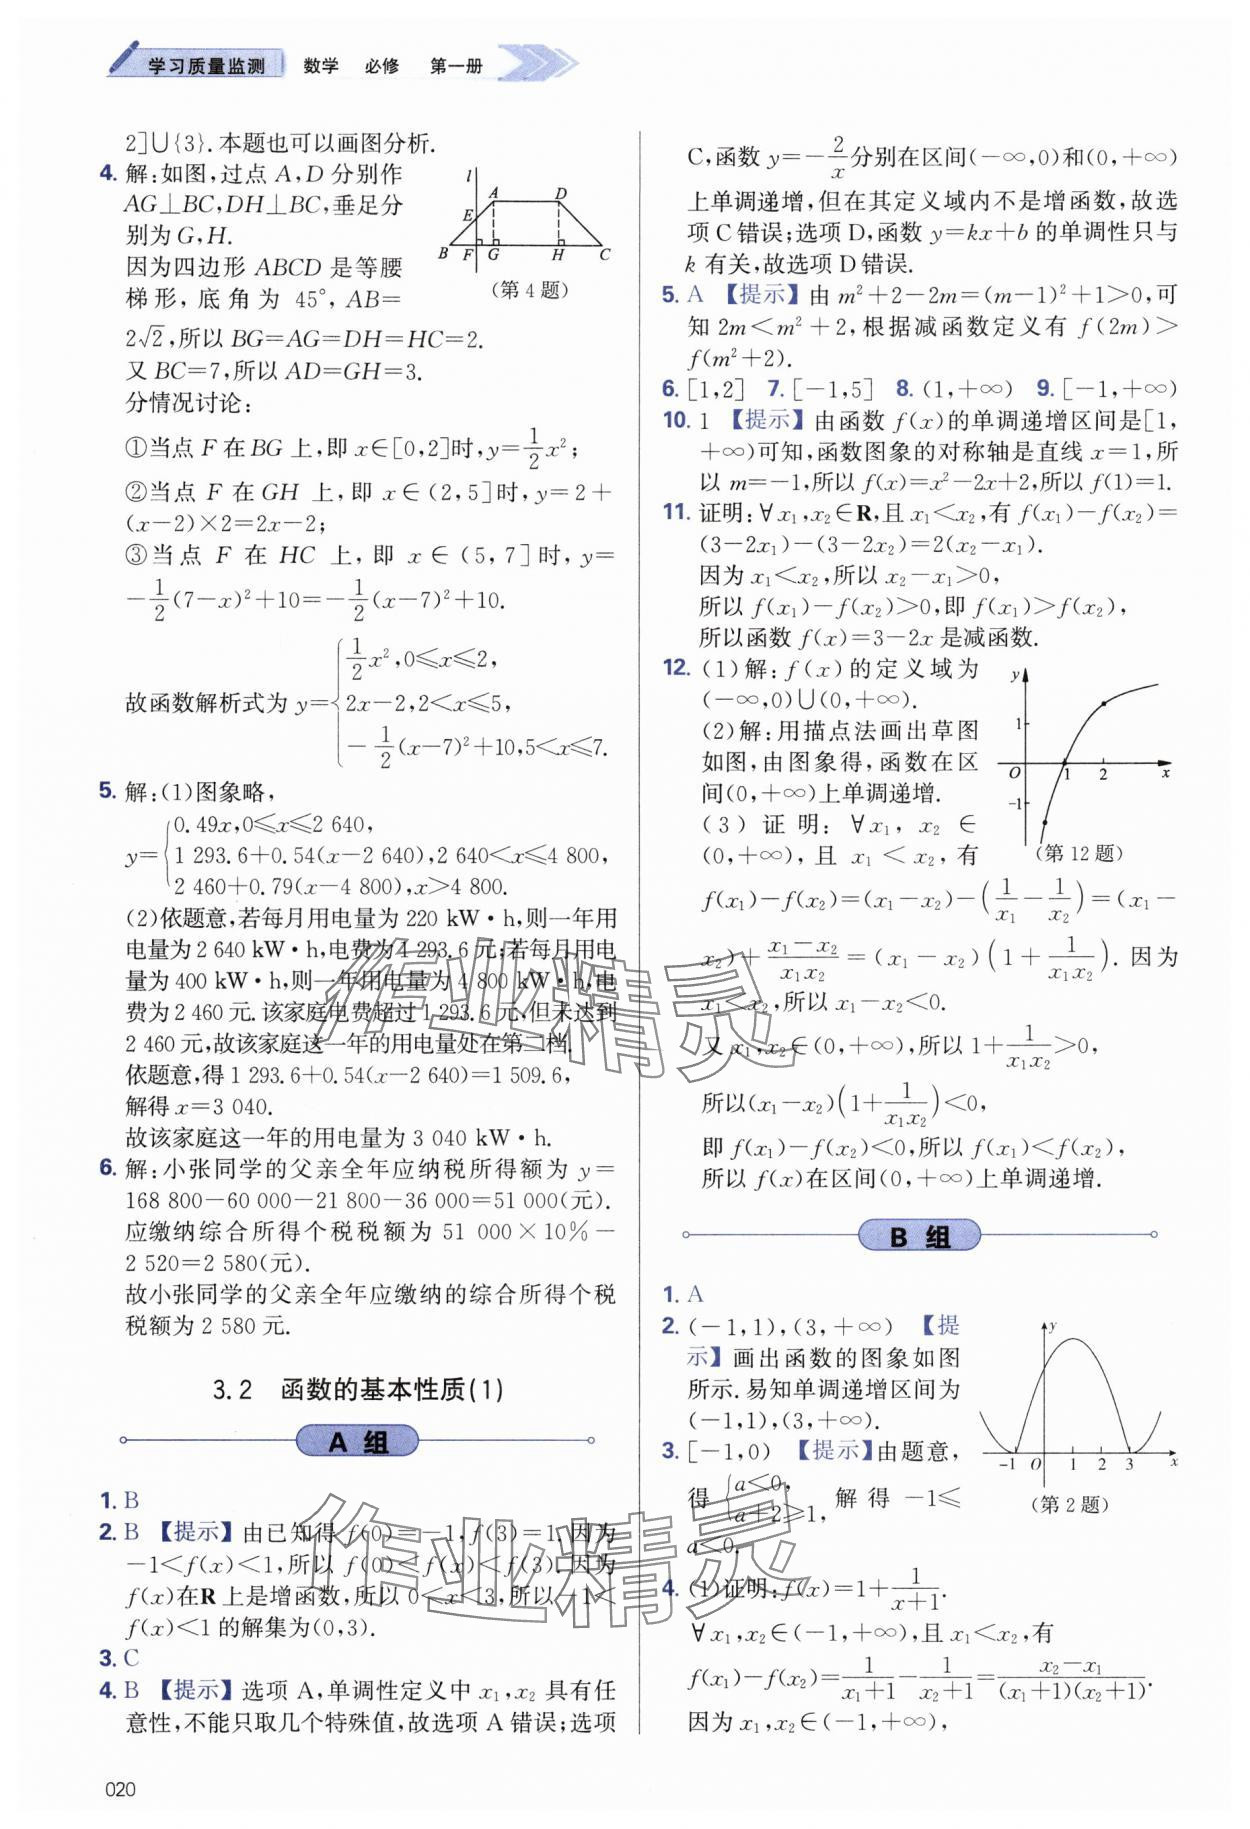 学习质量监测 数学 必修 第一册
2]∪{3}.本题也可以画图分析.
4. 解:如图,过点 A,D 分别作
AG⊥BC,DH⊥BC,垂足分
别为 G,H.
因为四边形 ABCD 是等腰
梯形, 底角为 45°, AB=
2√2,所以 BG=AG=DH=HC=2.
又 BC=7,所以 AD=GH=3.
分情况讨论:
①当点 F 在 BG 上,即 x∈[0,2]时,y=1/2x²;
②当点 F 在 GH 上,即 x∈(2,5]时,y=2+
(x-2)×2=2x-2;
③当点 F 在 HC 上,即 x∈(5,7]时,y=
-1/2(7-x)²+10=-1/2(x-7)²+10.
故函数解析式为 y={1/2x²,0≤x≤2,
2x-2,2<x≤5,
-1/2(x-7)²+10,5<x≤7.
l
A D
E
B F G H C
(第 4 题)
5. 解:(1)图象略,
y={0.49x,0≤x≤2 640,
1 293.6+0.54(x-2 640),2 640<x≤4 800,
2 460+0.79(x-4 800),x>4 800.
(2)依题意,若每月用电量为 220 kW·h,则一年用
电量为 2 640 kW·h,电费为 1 293.6 元;若每月用电
量为 400 kW·h,则一年用电量为 4 800 kW·h,电
费为 2 460 元.该家庭电费超过 1 293.6 元,但未达到
2 460 元,故该家庭这一年的用电量处在第二档.
依题意,得 1 293.6+0.54(x-2 640)=1 509.6,
解得 x=3 040.
故该家庭这一年的用电量为 3 040 kW·h.
6. 解:小张同学的父亲全年应纳税所得额为 y=
168 800-60 000-21 800-36 000=51 000(元).
应缴纳综合所得个税税额为 51 000×10%-
2 520=2 580(元).
故小张同学的父亲全年应缴纳的综合所得个税
税额为 2 580 元.
3.2 函数的基本性质(1)
A 组
1. B
2. B 【提示】由已知得 f(0)=-1,f(3)=1.因为
-1<f(x)<1,所以 f(0)<f(x)<f(3).因为
f(x)在 R 上是增函数,所以 0<x<3,所以-1<
f(x)<1 的解集为(0,3).
3. C
4. B 【提示】选项 A,单调性定义中 x₁,x₂ 具有任
意性,不能只取几个特殊值,故选项 A 错误;选项
C,函数 y=-2/x分别在区间(-∞,0)和(0,+∞)
上单调递增,但在其定义域内不是增函数,故选
项 C 错误;选项 D,函数 y=kx+b 的单调性只与
k 有关,故选项 D 错误.
5. A 【提示】由 m²+2-2m=(m-1)²+1>0,可
知 2m<m²+2,根据减函数定义有 f(2m)>
f(m²+2).
6. [1,2] 7. [-1,5] 8. (1,+∞) 9. [-1,+∞)
10. 1 【提示】由函数 f(x)的单调递增区间是[1,
+∞)可知,函数图象的对称轴是直线 x=1,所
以 m=-1,所以 f(x)=x²-2x+2,所以 f(1)=1.
11. 证明:∀x₁,x₂∈R,且 x₁<x₂,有 f(x₁)-f(x₂)=
(3-2x₁)-(3-2x₂)=2(x₂-x₁).
因为 x₁<x₂,所以 x₂-x₁>0,
所以 f(x₁)-f(x₂)>0,即 f(x₁)>f(x₂),
所以函数 f(x)=3-2x 是减函数.
12. (1)解:f(x)的定义域为
(-∞,0)∪(0,+∞).
(2)解:用描点法画出草图
如图,由图象得,函数在区
间(0,+∞)上单调递增.
(3)证明:∀x₁,x₂∈
(0,+∞),且 x₁<x₂,有
y
1
O 1 2 x
-1
(第 12 题)
f(x₁)-f(x₂)=(x₁-x₂)-(1/x₁-1/x₂)=(x₁-
x₂)+(x₁-x₂)/(x₁x₂)=(x₁-x₂)(1+1/(x₁x₂)).因为
x₁<x₂,所以 x₁-x₂<0.
又 x₁,x₂∈(0,+∞),所以 1+1/(x₁x₂)>0,
所以(x₁-x₂)(1+1/(x₁x₂))<0,
即 f(x₁)-f(x₂)<0,所以 f(x₁)<f(x₂),
所以 f(x)在区间(0,+∞)上单调递增.
B 组
1. A
2. (-1,1),(3,+∞) 【提
示】画出函数的图象如图
所示.易知单调递增区间为
(-1,1),(3,+∞).
y
-1 O 1 2 3 x
(第 2 题)
3. [-1,0) 【提示】由题意,
得{a<0,
a+2≥1, 解得 -1≤
a<0.
4. (1)证明:f(x)=1+1/(x+1).
∀x₁,x₂∈(-1,+∞),且 x₁<x₂,有
f(x₁)-f(x₂)=1/(x₁+1)-1/(x₂+1)=(x₂-x₁)/((x₁+1)(x₂+1)).
因为 x₁,x₂∈(-1,+∞),
作业精灵
作业精灵
020